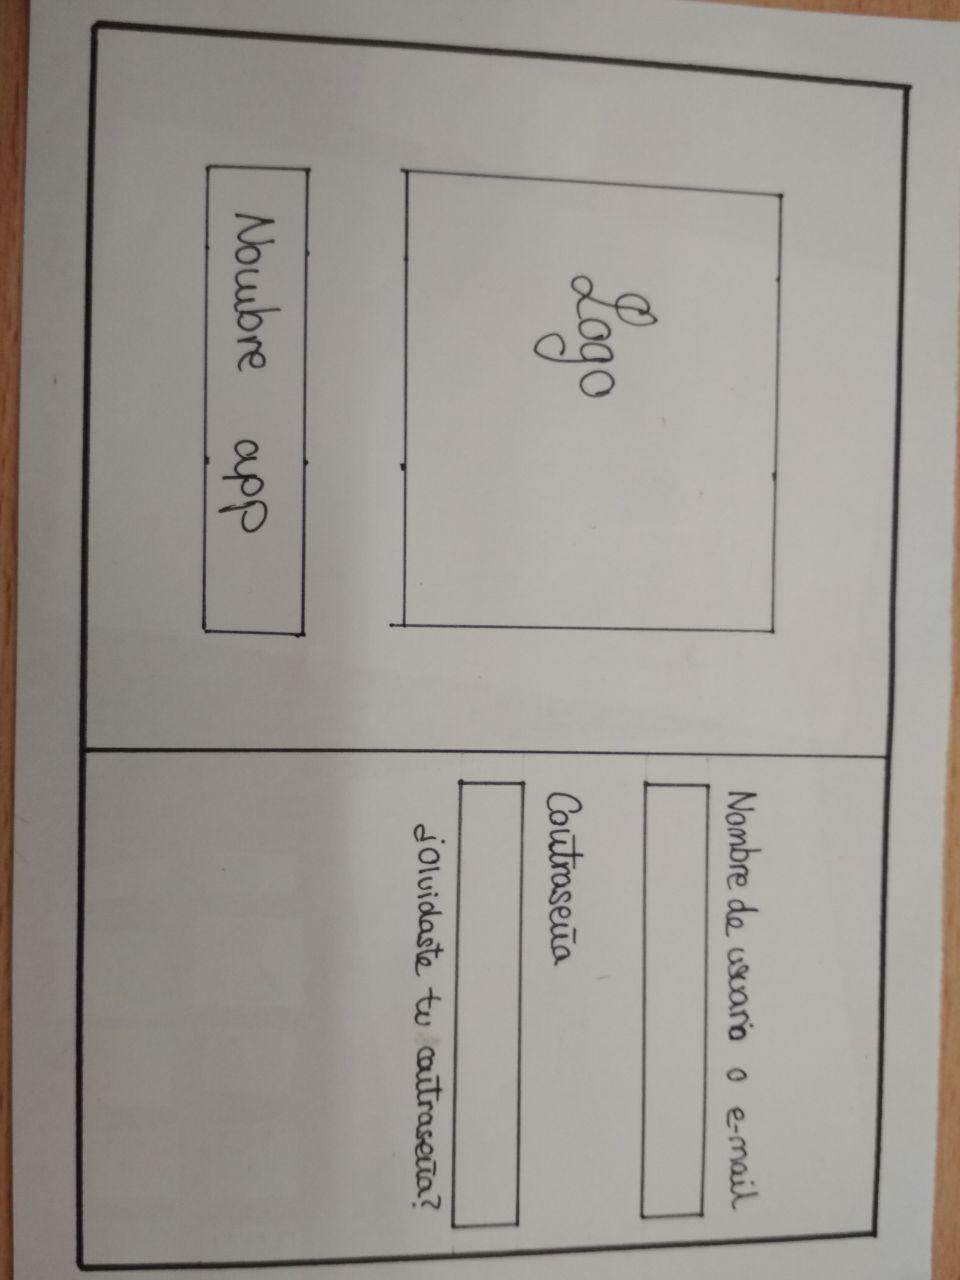 Logo
Nombre app
Nombre de usuario o e-mail
Contraseña
¿Olvidaste tu contraseña?